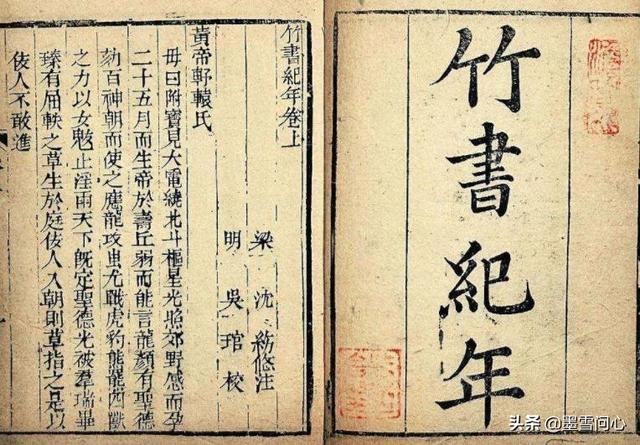 竹書紀年
竹書紀年卷上
梁 沈約 注
明 吳琯校
黃帝軒轅氏
母曰附寶見大電繞北斗樞星光照郊野感而孕
二十五月而生帝於壽丘弱而能言龍顏有聖德
劾百神朝而使之應龍攻蚩尤戰虎豹熊羆四獸
之力以女魃止淫雨天下既定聖德光被羣瑞畢
臻有屈軼之草生於庭佞人入朝則草指之是以
佞人不敢進
头条 @墨雪问心